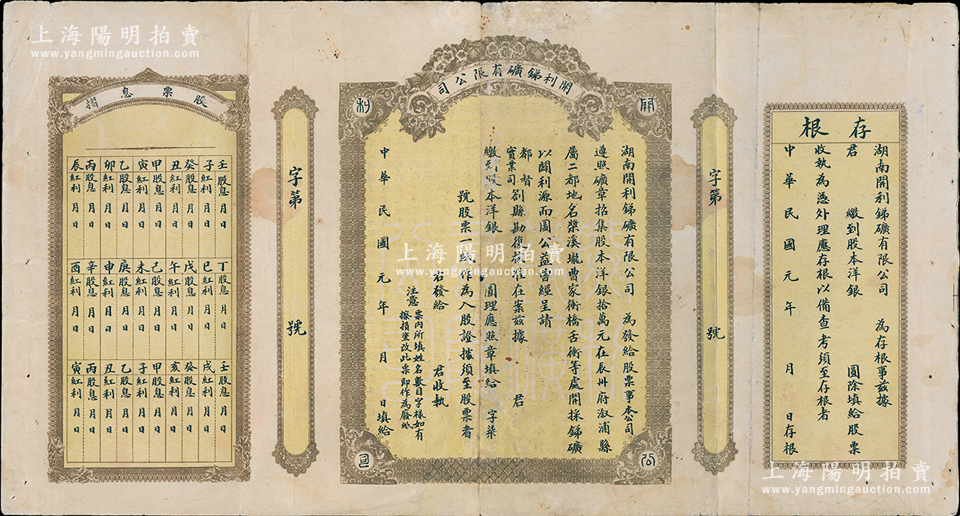 上海陽明拍賣
www.yangmingauction.com
存根
湖南開利銻礦有限公司 為存根事茲據
君 繳到股本洋銀 圓除填給股票
收執為憑外理應存根以備查考須至存根者
中華民國元年 月 日存根
字第 號
開利銻礦有限公司
開利公司
湖南開利銻礦有限公司 為發給股票事本公司
遵照礦章招集股本洋銀拾萬元在辰州府溆浦縣
屬二都地名槳溪壠曹家衝橋舌衝等處開採銻礦
以闢利源而圖公益曾經呈請
都督
實業司 劄縣勘復核准在案茲據 君
繳到股本洋銀 圓理應照章填給 字第
號股票一紙作為入股證據須至股票者
右發給 君收執
注意 票內所填姓名數目字樣如有
擦損塗改此票即作為廢紙
中華民國元年 月 日填給
字第 號
股票息摺
壬子 股息 紅利 月 日
癸丑 股息 紅利 月 日
甲寅 股息 紅利 月 日
乙卯 股息 紅利 月 日
丙辰 股息 紅利 月 日
丁巳 股息 紅利 月 日
戊午 股息 紅利 月 日
己未 股息 紅利 月 日
庚申 股息 紅利 月 日
辛酉 股息 紅利 月 日
壬戌 股息 紅利 月 日
癸亥 股息 紅利 月 日
甲子 股息 紅利 月 日
乙丑 股息 紅利 月 日
丙寅 股息 紅利 月 日
上海陽明拍賣
www.yangmingauction.com
上海陽明拍賣
www.yangmingauction.com